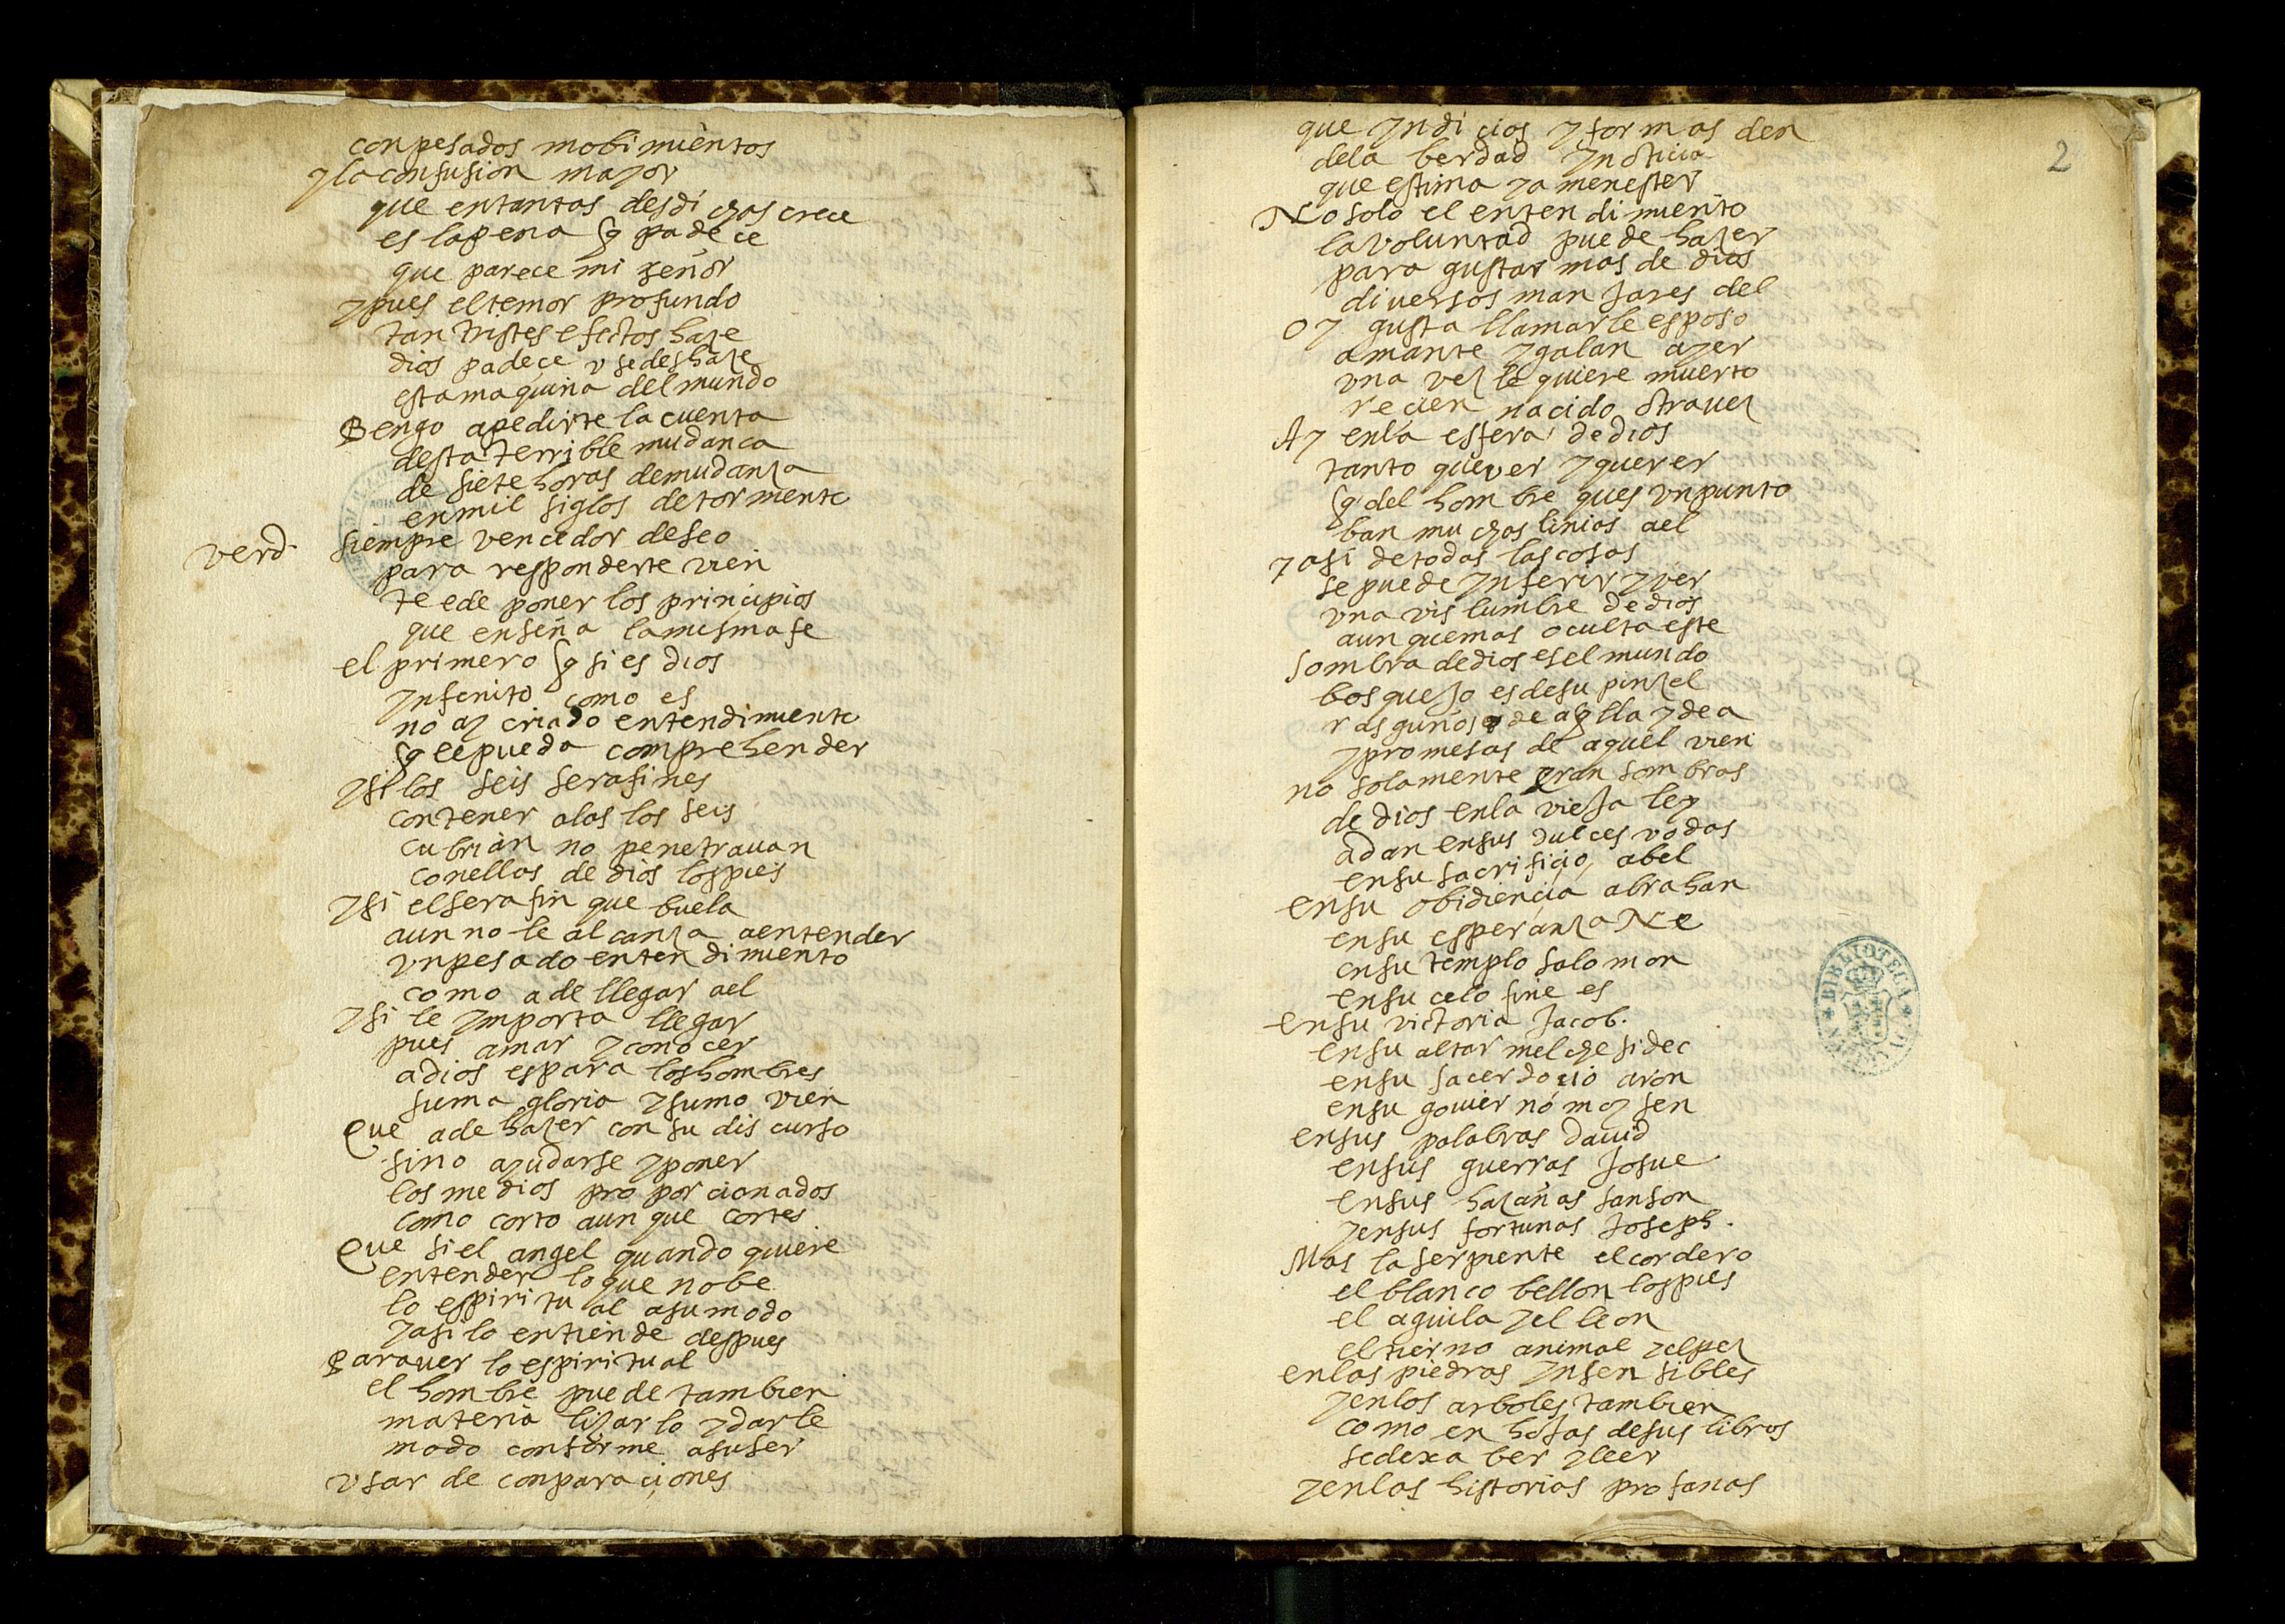 con pesados mobimientos
y la confusion mayor
que en tantas desdichas crece
es la pena q padece
que parece mi señor
y pues el temor profundo
tan tristes efectos haze
dios padece v se deshaze
esta maquina del mundo
Bengo a pedirte la cuenta
desta terrible mudanca
de siete horas de mudanza
en mil siglos de tormento
verd siempre vencedor deseo
para responderte vien
te e de poner los principios
que enseña la misma fe
el primero q si es dios
ynfenito como es
no ay criado entendimiento
q le pueda comprehender
y si los seis serafines
con tener alas los seis
cubrian no penetrauan
con ellas de dios los pies
y si el serafin que buela
aun no le alcanza a entender
vn pesado entendimiento
como a de llegar a el
y si le ymporta llegar
pues amar y conocer
a dios es para los hombres
suma gloria y sumo vien
Que a de hazer con su discurso
sino ayudarse y poner
los medios proporcionados
como corto aunque cortes
Que si el angel quando quiere
entender lo que no be
lo espiritual a su modo
y asi lo entiende despues
Para ver lo espiritual
el hombre puede tambien
materia lizarlo y darle
modo conforme a su ser
vsar de conparaciones
2
que yndicios y formas den
de la berdad y noticia
que estima y a menester
No solo el entendimiento
la voluntad puede hazer
para gustar mas de dios
diuersos manJares del
oy gusta llamarle esposo
amante y galan ayer
vna vez le quiere muerto
recien nacido otra uez
Ay en la esfera de dios
tanto que ver y querer
q del hombre ques vn punto
ban muchas linias a el
y asi de todas las cosas
se puede ynferir y ver
vna vislumbre de dios
aunque mas oculta este
sombra de dios es el mundo
bosqueJo es de su pinzel
rasguños de aqlla ydea
y promesas de aquel vien
no solamente eran sombras
de dios en la vieJa ley
adan en sus dulces vodas
en su sacrificio abel
en su obidiencia abrahan
en su esperanza Ne
en su templo salomon
en su celo fine es
en su victoria Jacob.
en su altar melchesidec
en su sacerdocio aron
en su gouierno moysen
en sus palabras dauid
en sus guerras Josue
en sus hazañas sanson
y en sus fortunas Joseph.
Mas la serpiente el cordero
el blanco bellon los pies
el aguila y el leon
el tierno animal y el pez
en las piedras ynsensibles
y en los arboles tambien
como en hoJas de sus libros
se dexa ber y leer
y en las historias profanas
BIBLIOTECA